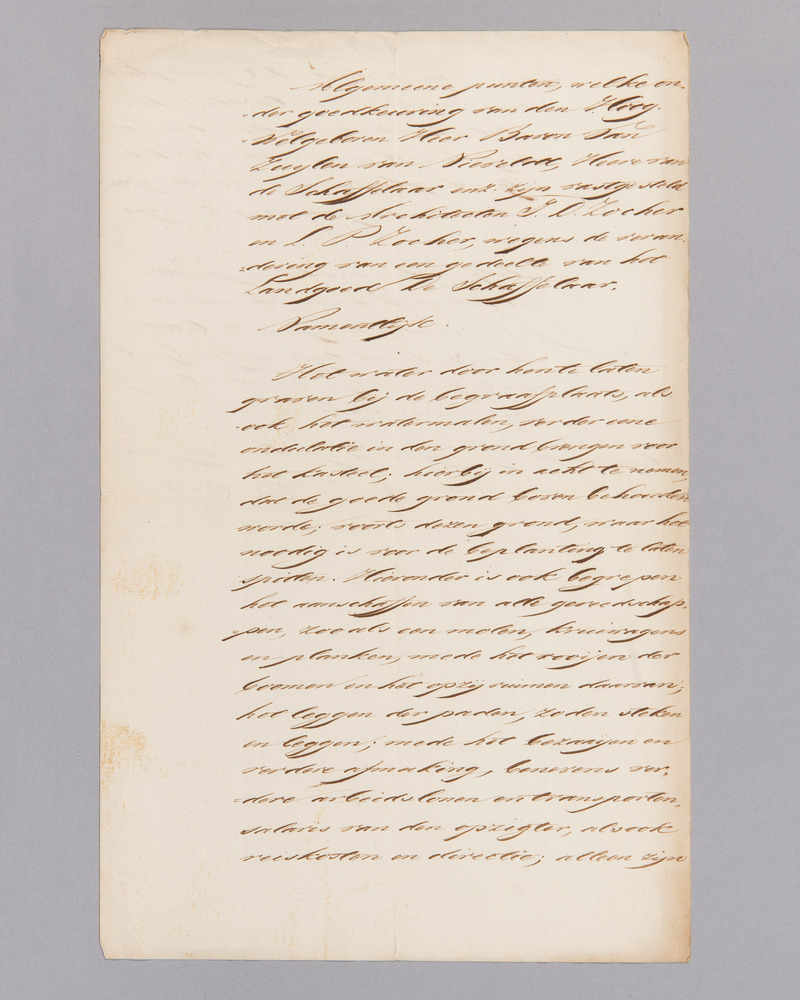 Algemeene punten, welke on-
-der goedkeuring van den Hoog-
-Welgeboren Heer Baron Van
Zuylen van Nievelt, Heere van
de Schaffelaar enz. zijn vastgesteld
met de Architecten J. D. Zocher
en L. P. Zocher, wegens de veran-
=dering van een gedeelte van het
Landgoed De Schaffelaar.
Namentlijk.
Het water door hen te laten
graven bij de begraafplaats, als
-ook het watermalen, verder eene
ondulatie in den grond brengen voor
het kasteel; hierbij in acht te nemen,
dat de goede grond boven behouden
worde; voorts dezen grond, waar het
noodig is voor de beplanting te laten
spitten. Hieronder is ook begrepen
het aanschaffen van alle gereedschap-
-pen, zooals een molen, kruiwagens
en planken, mede het rooijen der
boomen en het opzij ruimen daarvan;
het leggen der paden, zoden steken
en leggen; mede het bezaaijen en
verdere afmaking, benevens ver-
=dere arbeidslonen en transporten,
salaris van den opzigter, alsook
reiskosten en directie; alleen zijn